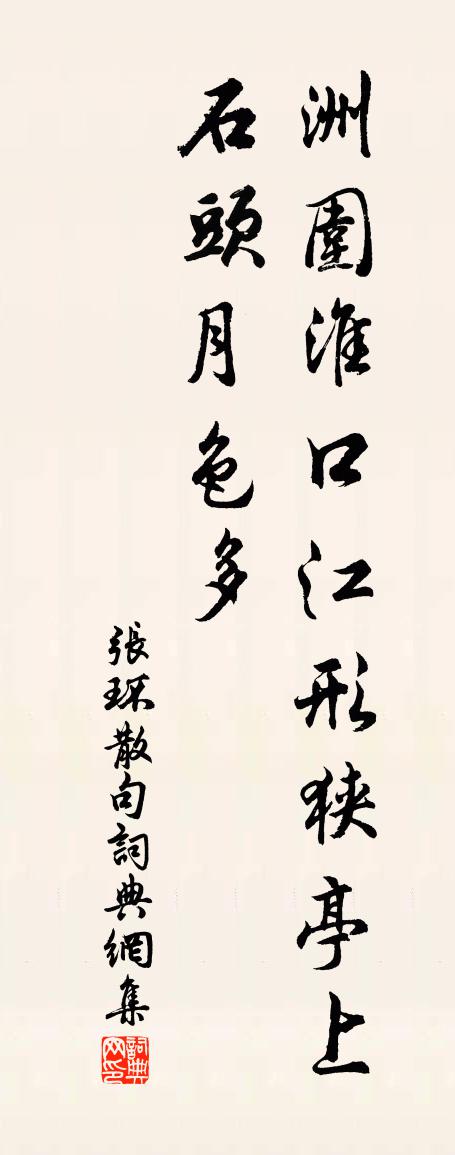 洲圍淮口江形狹亭上
石頭月色多
張琛散句詞典網集
詞典网印